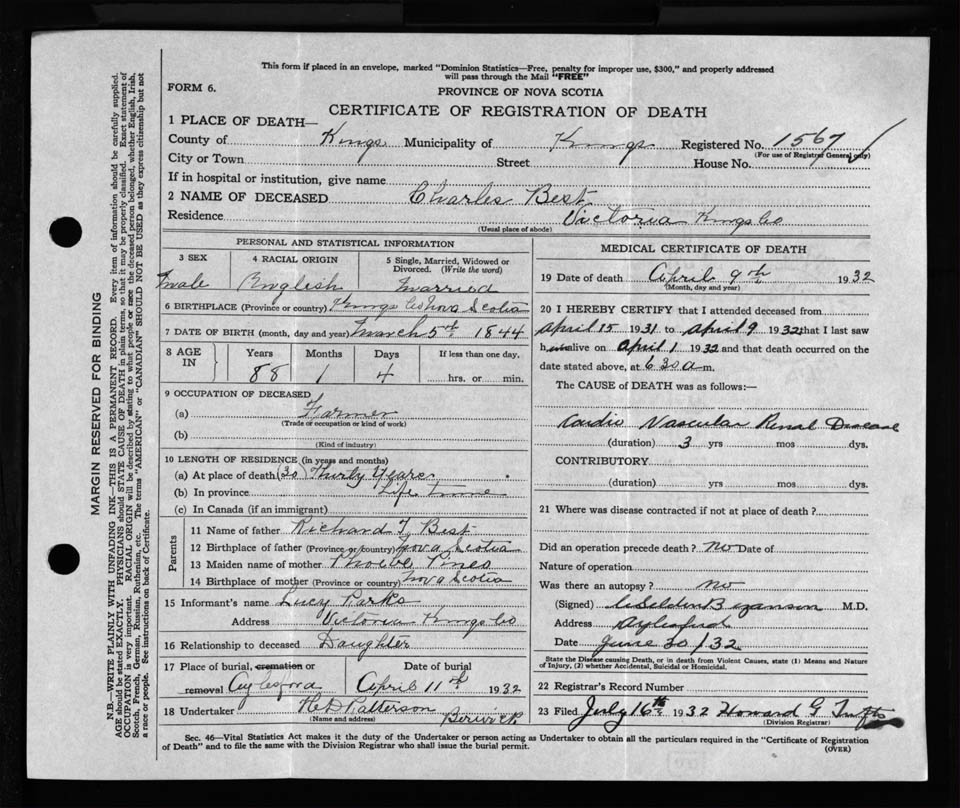 This form if placed in an envelope, marked "Dominion Statistics—Free, penalty for improper use, $300," and properly addressed
will pass through the Mail "FREE"
FORM 6.
PROVINCE OF NOVA SCOTIA
CERTIFICATE OF REGISTRATION OF DEATH
1 PLACE OF DEATH—
County of Kings Municipality of Kings Registered No. 1567
(For use of Registrar General only)
City or Town Street House No.
If in hospital or institution, give name
2 NAME OF DECEASED Charles Best
Residence Victoria Kings Co
(Usual place of abode)
PERSONAL AND STATISTICAL INFORMATION
3 SEX 4 RACIAL ORIGIN 5 Single, Married, Widowed or Divorced. (Write the word)
Male English Married
6 BIRTHPLACE (Province or country) Kings Co Nova Scotia
7 DATE OF BIRTH (month, day and year) March 5th 1844
8 AGE IN Years Months Days If less than one day.
88 1 4 hrs. or min.
9 OCCUPATION OF DECEASED
(a) Farmer
(Trade of occupation or kind of work)
(b)
(Kind of industry)
10 LENGTH OF RESIDENCE (in years and months)
(a) At place of death (30 Thirty Years
(b) In province Life Time
(c) In Canada (if an immigrant)
Parents
11 Name of father Richard T. Best
12 Birthplace of father (Province or country) Nova Scotia
13 Maiden name of mother Phoebe Pineo
14 Birthplace of mother (Province or country) Nova Scotia
15 Informant's name Lucy Parks
Address Victoria Kings Co
16 Relationship to deceased Daughter
17 Place of burial, cremation or removal Aylesford
Date of burial April 11th 1932
18 Undertaker H D Patterson Berwick
(Name and address)
MEDICAL CERTIFICATE OF DEATH
19 Date of death April 9th 1932
(Month, day and year)
20 I HEREBY CERTIFY that I attended deceased from
April 15 1931 to April 9 1932 that I last saw
him alive on April 1 1932 and that death occurred on the
date stated above, at 6 30 a m.
The CAUSE OF DEATH was as follows:—
Cardio Vascular Renal Disease
(duration) 3 yrs mos dys.
CONTRIBUTORY
(duration) yrs. mos. dys.
21 Where was disease contracted if not at place of death?
Did an operation precede death? No Date of
Nature of operation
Was there an autopsy? no
(Signed) M.D.
Address Aylesford
Date June 30/32
State the Disease causing Death, or in death from Violent Causes, state (1) Means and Nature
of Injury, (2) whether Accidental, Suicidal or Homicidal.
22 Registrar's Record Number
23 Filed July 16th 1932 Howard G
(Division Registrar)
Sec. 46—Vital Statistics Act makes it the duty of the Undertaker or person acting as Undertaker to obtain all the particulars required in the "Certificate of Registration
of Death" and to file the same with the Division Registrar who shall issue the burial permit.
(OVER)
MARGIN RESERVED FOR BINDING
N.B.—WRITE PLAINLY WITH UNFADING INK—THIS IS A PERMANENT RECORD. Every item of information should be carefully supplied.
AGE should be stated EXACTLY. PHYSICIANS should STATE CAUSE OF DEATH in plain terms, so that it may be properly classified. Exact statement of
OCCUPATION is very important. RACIAL ORIGIN will be described by stating to what people or race the deceased person belonged, whether English, Irish,
Scotch, French, German, Russian, Ruthenian, etc. The terms "AMERICAN" or "CANADIAN" SHOULD NOT BE USED as they express citizenship but not
a race or people. See instructions on back of Certificate.